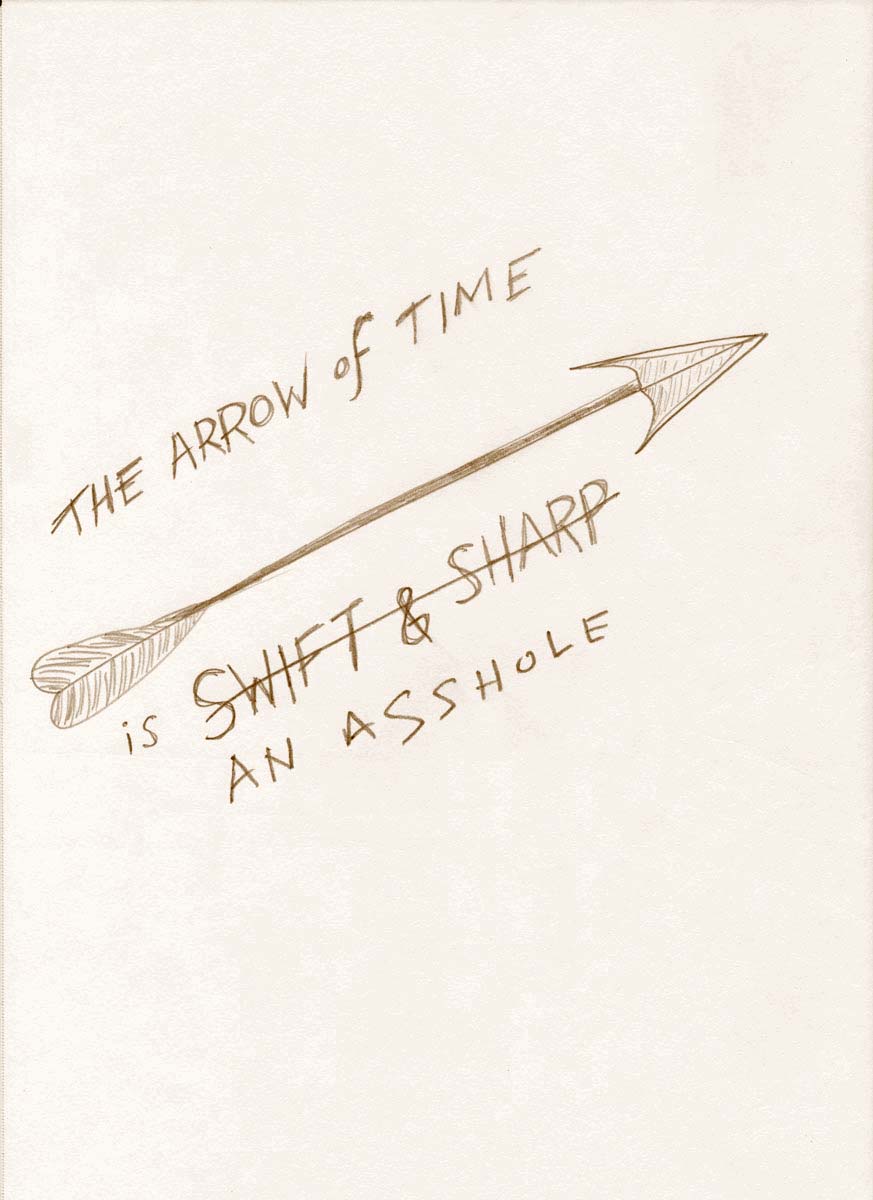 THE ARROW of TIME
is SWIFT & SHARP
AN ASSHOLE